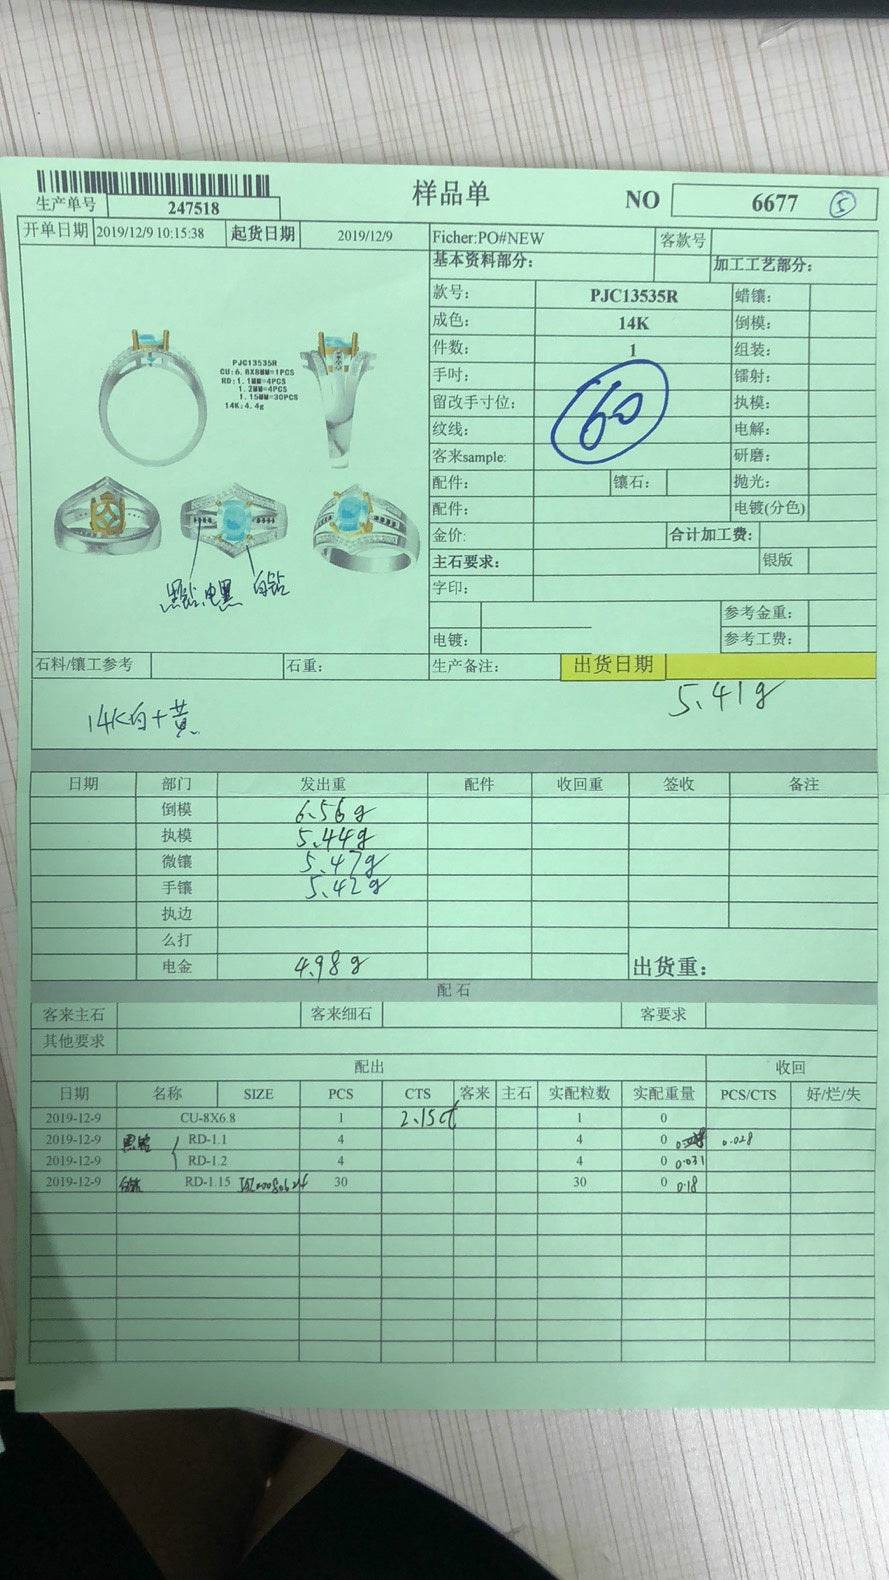 样品单
NO 6677 ⑤
生产单号 247518
开单日期 2019/12/9 10:15:38 起货日期 2019/12/9 Ficher:PO#NEW 客款号
基本资料部分: 加工工艺部分:
款号: PJC13535R 蜡镶:
成色: 14K 倒模:
件数: 1 组装:
手吋: 60 镭射:
留改手寸位: 执模:
纹线: 电解:
客来sample: 研磨:
配件: 镶石: 抛光:
配件: 电镀(分色)
金价: 合计加工费:
主石要求: 银版
字印:
参考金重:
电镀: 参考工费:
PJC13535R
CU:6.8X8MM=1PCS
RD:1.1MM=4PCS
1.2MM=4PCS
1.15MM=30PCS
14K:4.4g
黑钻,电黑 白钻
石料/镶工参考 石重: 生产备注: 出货日期
5.41g
14K白+黄
日期 部门 发出重 配件 收回重 签收 备注
倒模 6.56g
执模 5.44g
微镶 5.47g
手镶 5.42g
执边
么打
电金 4.98g 出货重:
配石
客来主石 客来细石 客要求
其他要求
配出 收回
日期 名称 SIZE PCS CTS 客来 主石 实配粒数 实配重量 PCS/CTS 好/烂/失
2019-12-9 CU-8X6.8 1 2.15ct 1 0
2019-12-9 黑钻 RD-1.1 4 4 0 0.028
2019-12-9 RD-1.2 4 4 0 0.031
2019-12-9 RD-1.15 30 30 0 0.18